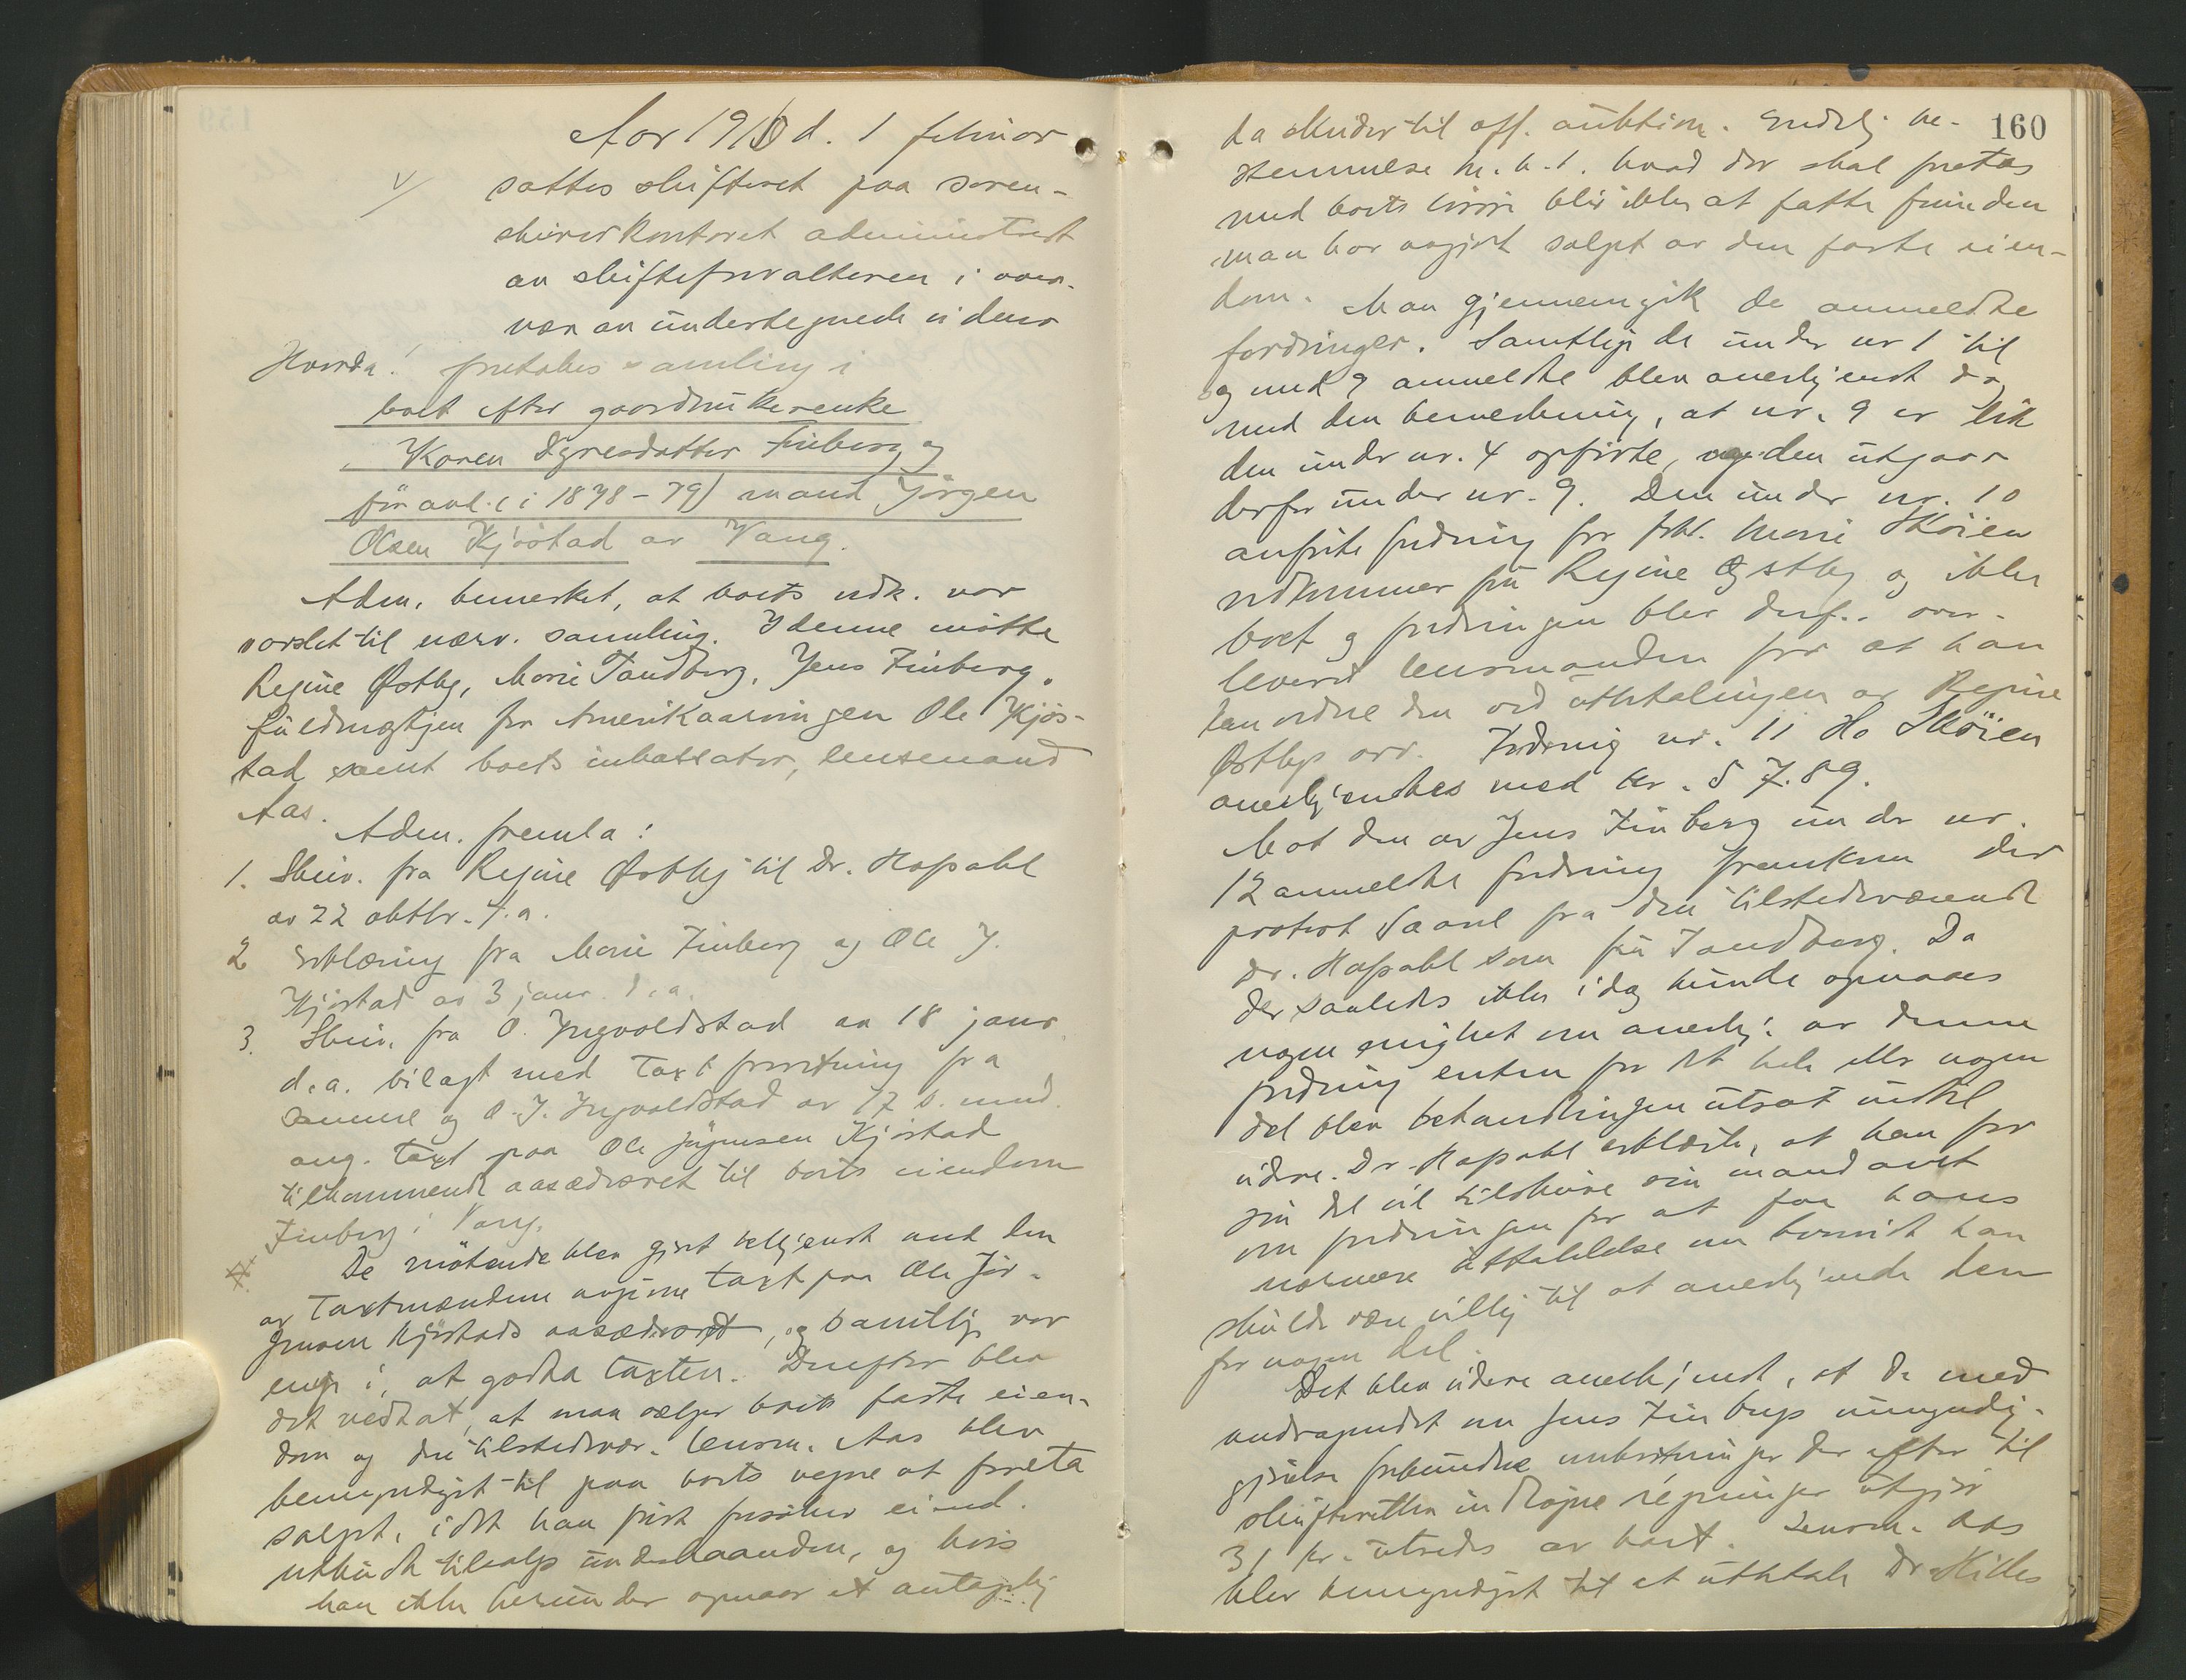 Aar 1910 d. 1 februar
sattes skifteret paa soren-
skriverkontoret administrert
av skifteforvalteren i over-
vær av undertegnede vidner
Hvorda! foretokes samling i
boet efter gaardmukerenke
Karen Syresdatter Finberg og
før avl. (i 1878-79) mand Jörgen
Olsen Kjöstad av Vang.
Adm. bemerket, at boets vedk. var
varslet til nærv. samling. I denne mötte
Regine Østby, Marie Sandberg, Jens Finberg,
fuldmægtigen for Amerikaarvingen Ole Kjös-
tad samt boets inkassator, lensmand
Aas.
Adm. fremla:
1. Skriv. fra Regine Østby til Dr. Hoffahl
av 22 oktbr. f.a.
2 Erklæring fra Marie Finberg og Ole J.
Kjöstad av 3 janr. d.a.
3. Skriv. fra O. Yngvoldstad av 18 janr.
d.a. bilagt med taxtforretning fra
samme og O. J. Yngvoldstad av 17 s. mnd.
ang. taxt paa Ole Jörgensen Kjöstad
tilkommende aasædesret til boets eiendom
Finberg i Vang.
De mötende blev gjort bekjendt med den
av taxtmændene avgivne taxt paa Ole Jör-
gensen Kjöstads aasædesret, og samtlige var
enige i, at godta taxten. Derefter blev
det vedtat, at man sælger boets faste eien-
dom og den tilstedevær. lensm. Aas blev
bemyndiget til paa boets vegne at foreta
salget, idet han först forsöker eiend.
utbudt tilsalgs underhaanden, og hvis
han ikke herunder opnaar et antagelig
160
da skrider til off. auktion. Endelig be-
stemmelse m.h.t. hvad der skal foretas
med boets lösöre blir ikke at fatte förinden
man har avgjort salget av den faste eien-
dom. Man gjennemgik de anmeldte
fordringer. Samtlige de under nr 1 til
og med 9 anmeldte blev anerkjendt dog
med den bemerkning, at nr. 9 er lik
den under nr. 4 opförte, og den utgaar
derfor under nr. 9. Den under nr. 10
anförte fordring for frk. Marie Sköien
vedkommer fru Regine Østby og ikke
boet og fordringen blev derfor over-
levert lensmanden for at han
kan ordne den ved utbetalingen av Regine
Østbys arv. Fordring nr. 11 Ho Sköien
anerkjendtes med kr. 57.89.
Mot den av Jens Finberg under nr.
12 anmeldte fordring fremkom der
protest saavel fra den tilstedeværende
dr. Hoffahl som fru Sandberg. Da
der saaledes ikke idag kunde opnaaes
nogen enighet om anerkj. av denne
fordring enten for det hele eller nogen
del blev behandlingen utsat indtil
videre. Dr. Hoffahl erklærte, at han for
sin del vil tilskrive sin mandant
om fordringen for at faa hans
nærmere uttalelse om hvorvidt han
skulde være villig til at anerkjende den
for nogen del.
Det blev videre anerkjendt, at de med
andragendet om Jens Finbergs umyndig-
gjørelse forbundne omkostninger der efter til
skifteretten indkomne regninger utgjør
31 kr. utredes av boet. Lensm. Aas
blev bemyndiget til at utbetale Dr. Milles